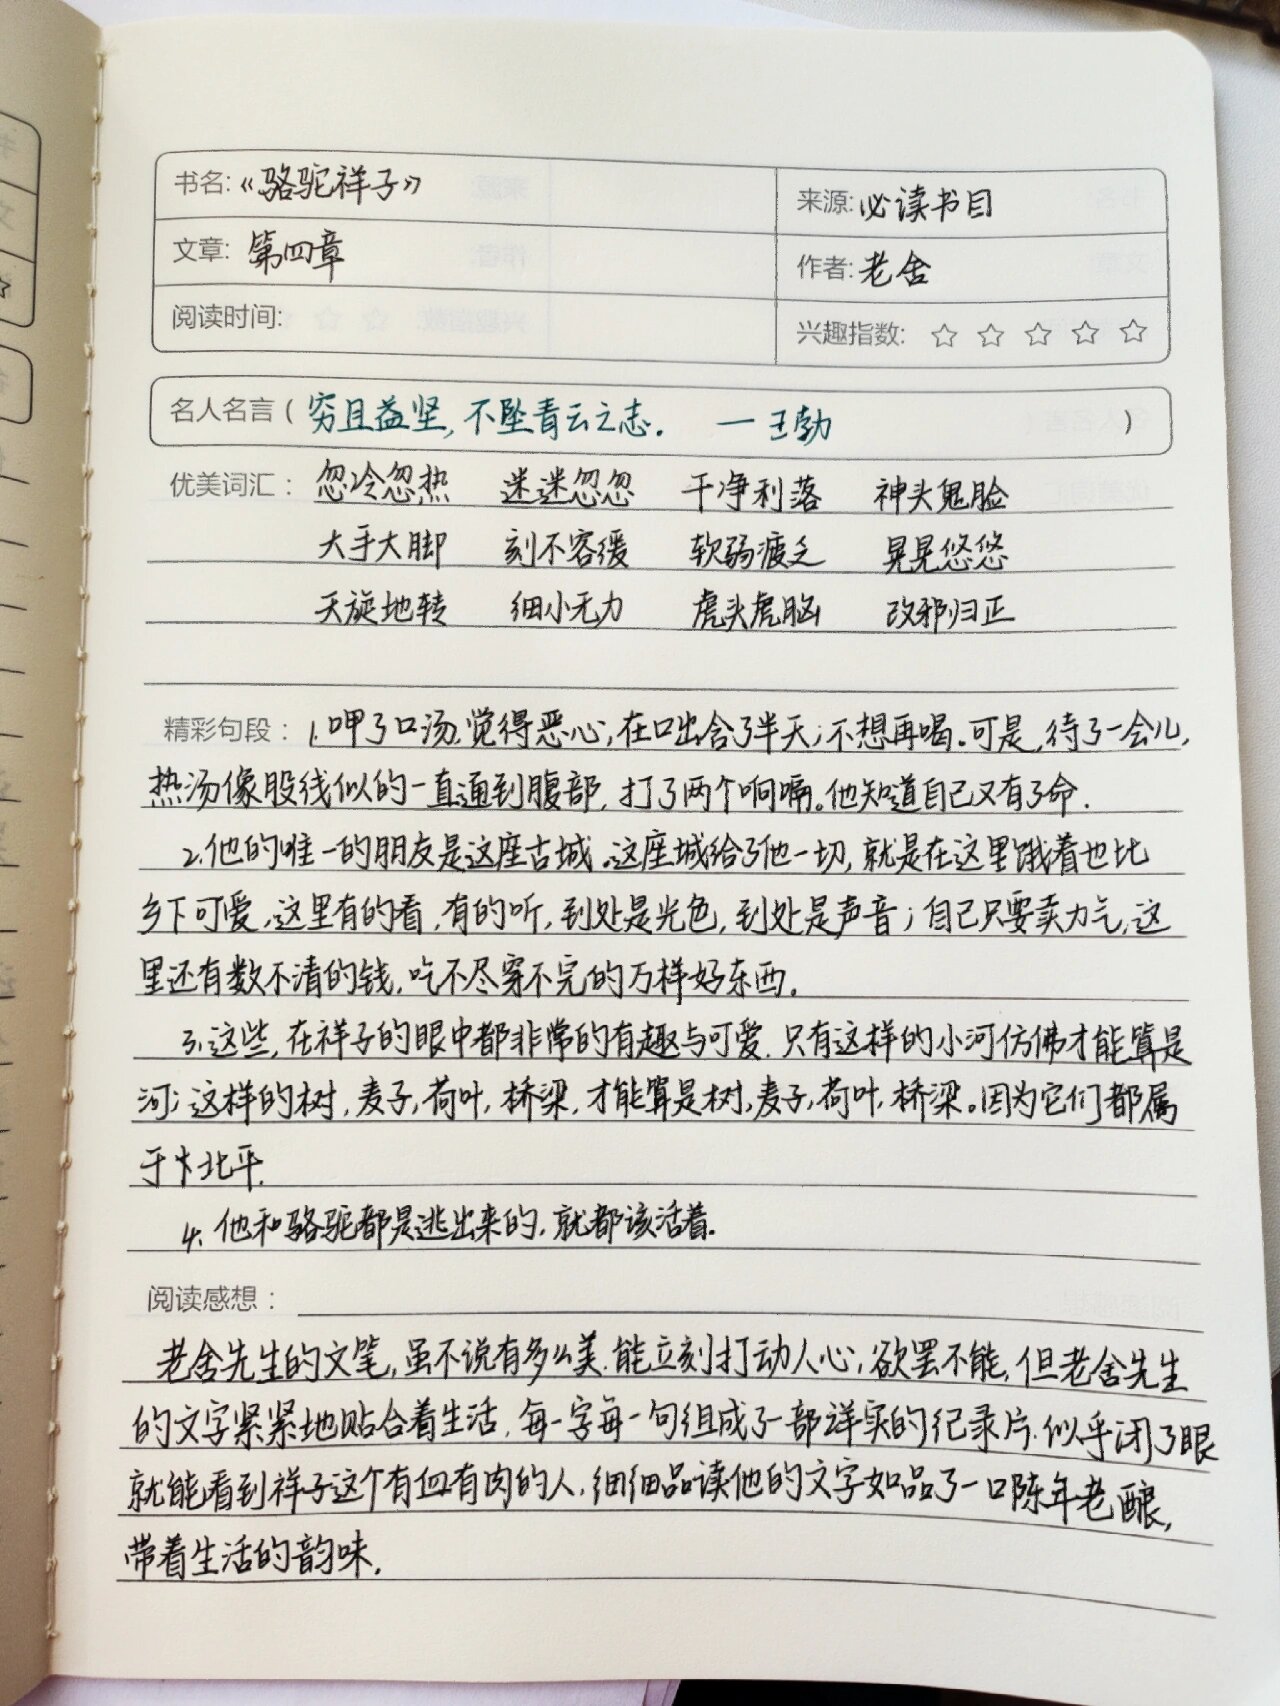 书名:《骆驼祥子》
来源:必读书目
文章: 第四章
作者:老舍
阅读时间:
兴趣指数: ☆ ☆ ☆ ☆ ☆
名人名言( 穷且益坚,不坠青云之志. 一王勃 )
优美词汇: 忽冷忽热 迷迷忽忽 干净利落 神头鬼脸
大手大脚 刻不容缓 软弱疲乏 晃晃悠悠
天旋地转 细小无力 虎头虎脑 改邪归正
精彩句段: 1.呷了口汤,觉得恶心,在口出含了半天;不想再喝。可是,待了一会儿,
热汤像股线似的一直通到腹部,打了两个响嗝。他知道自己又有了命.
2.他的唯一的朋友是这座古城。这座城给了他一切,就是在这里饿着也比
乡下可爱,这里有的看,有的听,到处是光色,到处是声音;自己只要卖力气,这
里还有数不清的钱,吃不尽穿不完的万样好东西。
3.这些,在祥子的眼中都非常的有趣与可爱.只有这样的小河仿佛才能算是
河;这样的树,麦子,荷叶,桥梁,才能算是树,麦子,荷叶,桥梁。因为它们都属
于北平.
4.他和骆驼都是逃出来的,就都该活着.
阅读感想:
老舍先生的文笔,虽不说有多么美.能立刻打动人心,欲罢不能,但老舍先生
的文字紧紧地贴合着生活,每一字每一句组成了一部详实的纪录片,似乎闭了眼
就能看到祥子这个有血有肉的人,细细品读他的文字如品了一口陈年老酿,
带着生活的韵味.